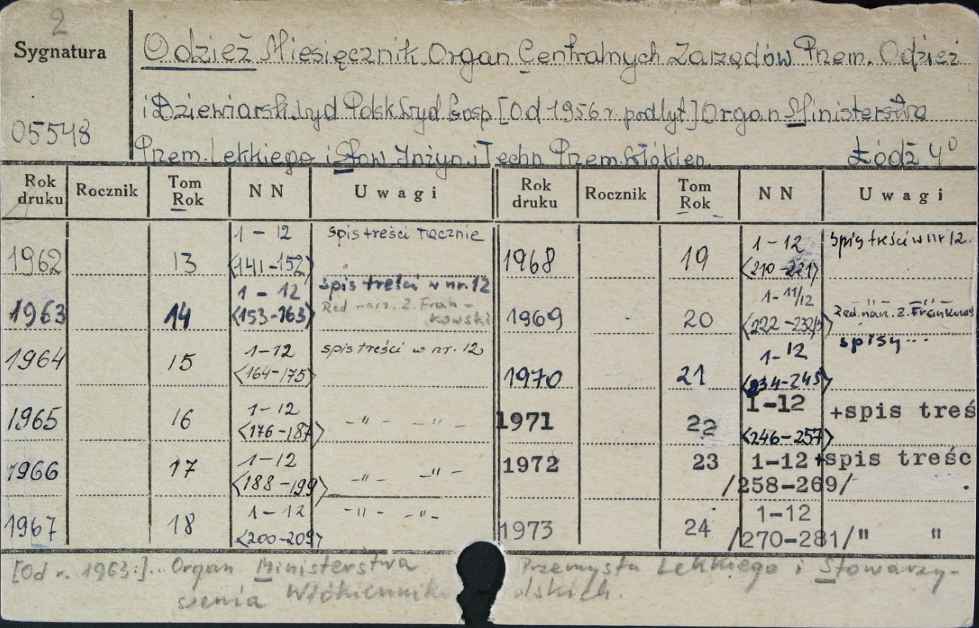 2
Sygnatura
05548
Odzież Miesięcznik Organ Centralnych Zarządów Przem. Odzież
i Dziewiarsk Wyd Polsk Wyd Gosp [Od 1956 r. podtyt] Organ Ministerstwa
Przem. Lekkiego i Stow Inżyn. i Techn Przem. Włókien. Łódź 4°
Rok druku Rocznik Tom Rok N N Uwagi Rok druku Rocznik Tom Rok N N Uwagi
1962 13 1-12 <141-152> spis treści łącznie
1963 14 1-12 <153-163> spis treści w nr. 12 Red nacz. Z. Frankowski
1964 15 1-12 <164-175> spis treści w nr. 12
1965 16 1-12 <176-187> -"- -"-
1966 17 1-12 <188-199> -"- -"-
1967 18 1-12 <200-209> -"- -"-
1968 19 1-12 <210-221> spis treści w nr 12
1969 20 1-11/12 -"- -"- Red. nacz. Z. Frankowski
1970 21 1-12 <234-245> spisy...
1971 22 1-12 <246-257> +spis treś
1972 23 1-12 +spis treśc /258-269/
1973 24 1-12 /270-281/ " "
[Od r. 1963:]... Organ Ministerstwa Przemysłu Lekkiego i Stowarzy-
szenia Włókiennik lskich.